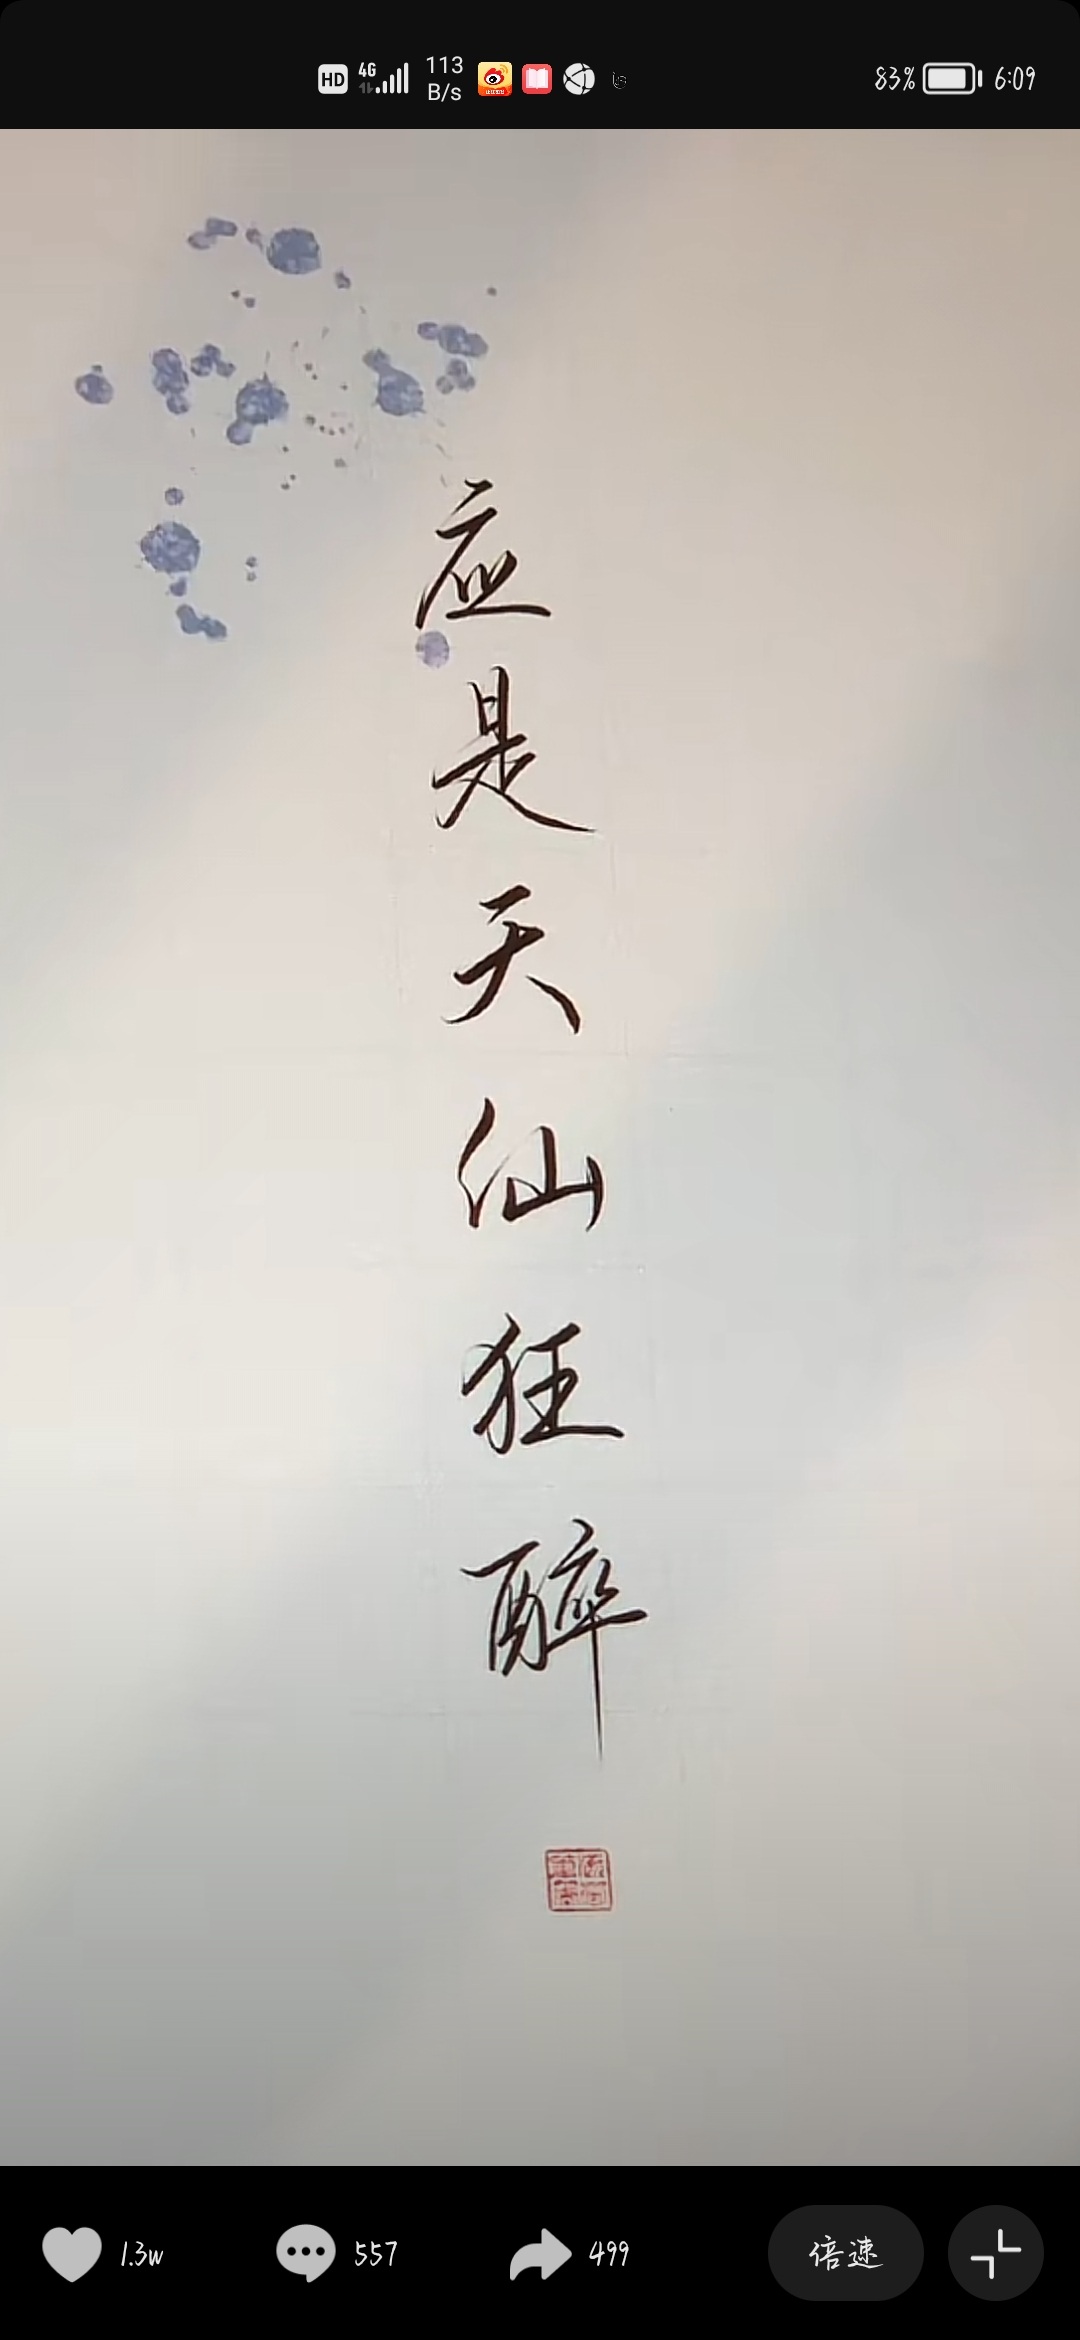 HD 4G 113 B/s 83% 6:09
应是天仙狂醉
1.3w 557 499 倍速